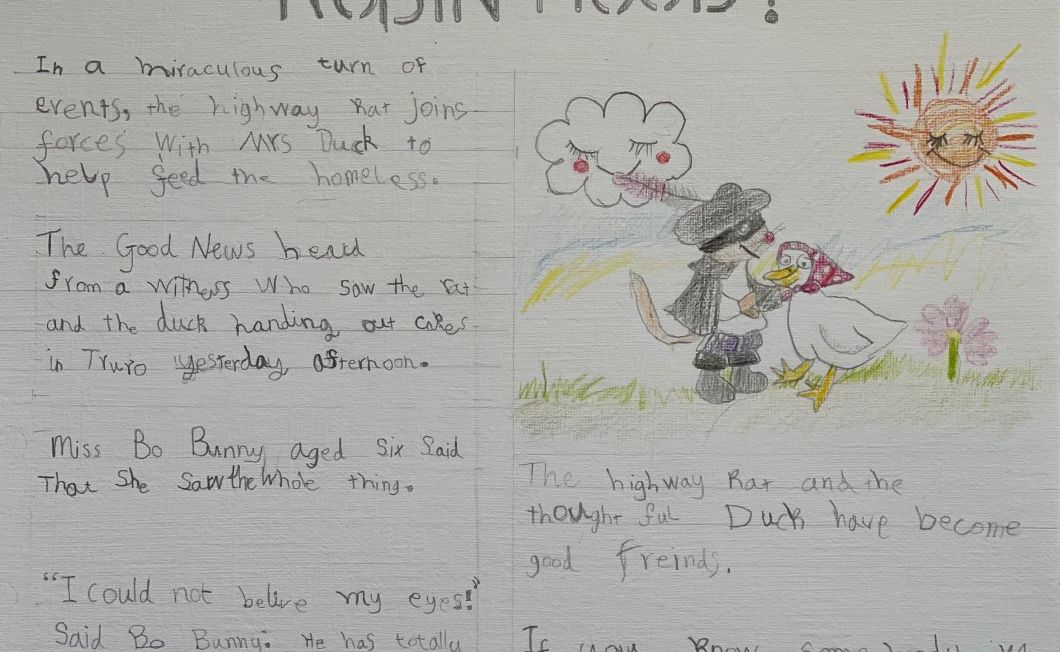 In a miraculous turn of
events, the highway Rat joins
forces with Mrs Duck to
help feed the homeless.
The Good News heard
from a witness who saw the rat
and the duck handing out cakes
in Truro yesterday afternoon.
Miss Bo Bunny aged Six Said
That She Saw the Whole thing.
"I could not belive my eyes!"
Said Bo Bunny. He has totally
The highway Rat and the
thought ful Duck have become
good freinds.
If you Know